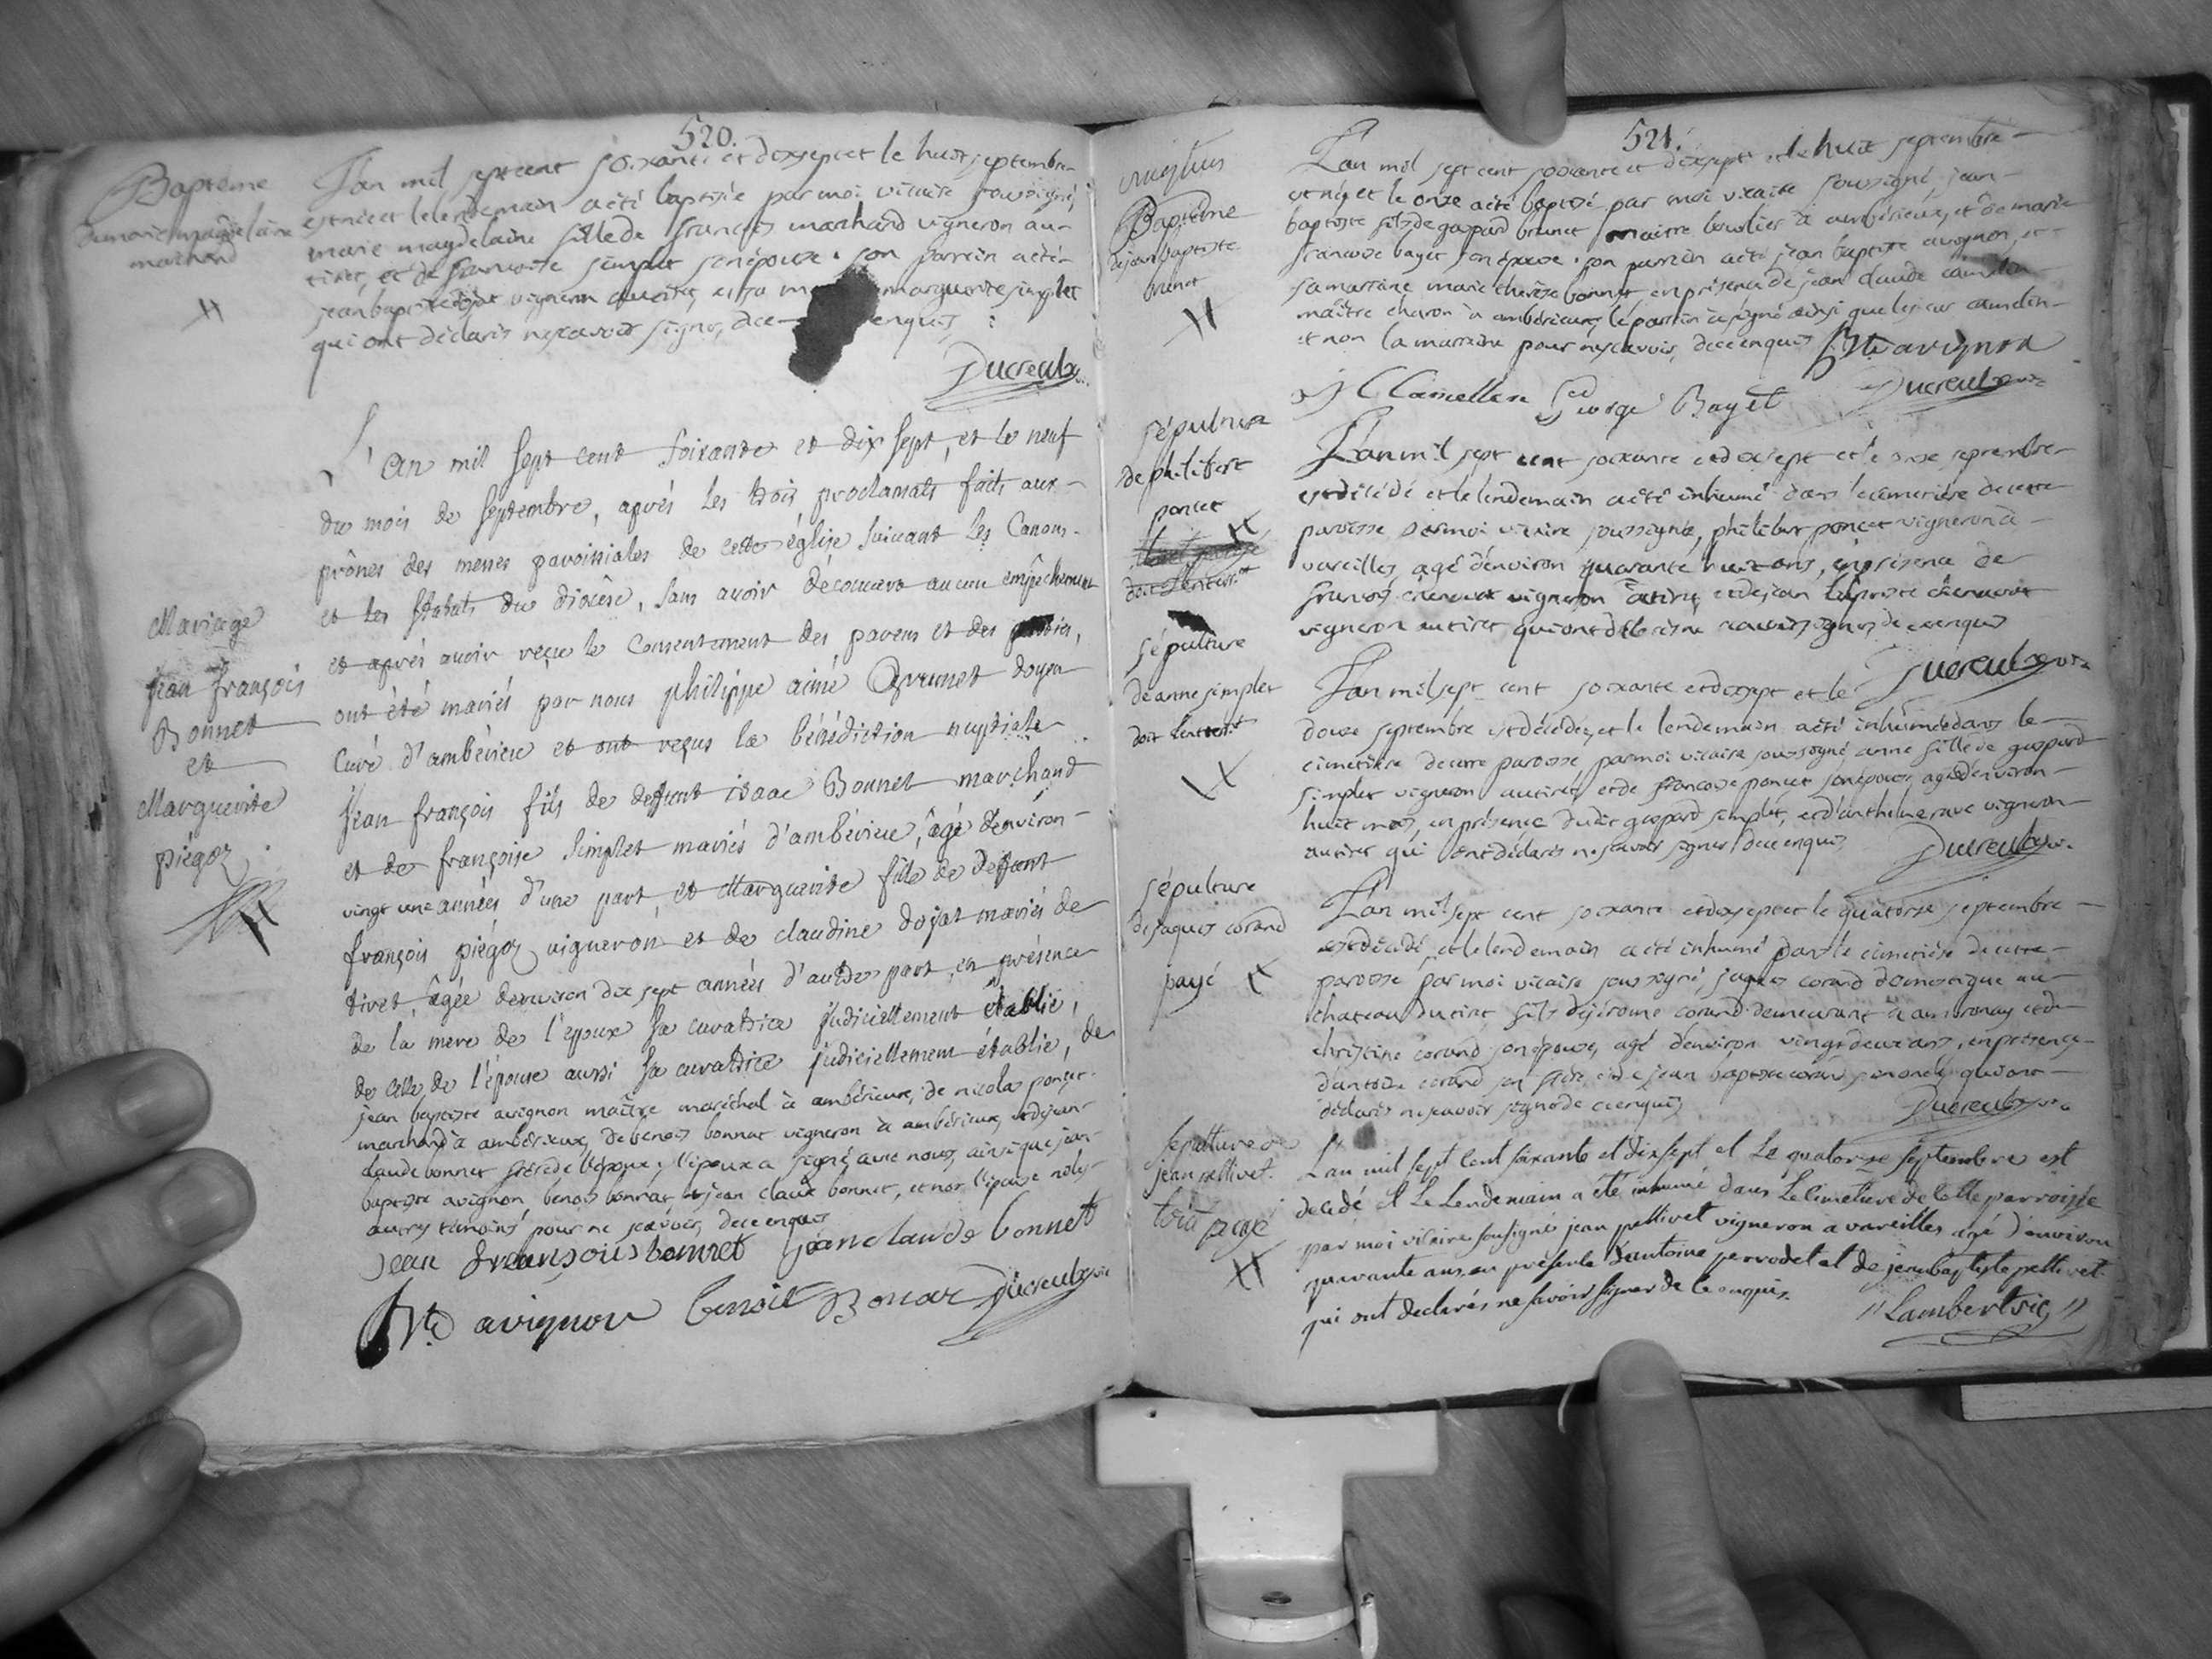 520.
Baptême
de marie magdelaine
marchand
L'an mil sept cent soixante et dixsept et le huit septembre
est née et le lendemain a été baptisée par moi vicaire soussigné,
marie magdelaine fille de françois marchand vigneron au-
tiret, et de françoise simplet son épouse. son parrain a été
jean baptiste dojat vigneron au tiret, et sa marguerite simplet
qui ont déclarés ne scavoir signer, de ce enquis
Ducreulx
Mariage
Jean françois
Bonnet
et
Marguerite
piégoz
L'an mil sept cent soixante et dix sept, et le neuf
du mois de septembre, aprés les trois proclamats faits aux-
prônes des messes paroissiales de cette église suivant les Canons
et les statuts du diocèse, sans avoir découvert aucun empêchement
et aprés avoir reçu le Consentement des parens et des parties,
ont été mariés par nous philippe aimé doyen
Curé d'ambérieu et ont reçus la bénédiction nuptiale
Jean françois fils de deffunt isaac Bonnet marchand
et de françoise Simplet mariés d'ambérieu, âgé d'environ
vingt une années d'une part, et Marguerite fille de deffunt
françois piégoz vigneron et de claudine dojat mariés de
tiret, âgée denviron dix sept années d'autre part, en présence
de la mere de l'epoux sa curatrice judiciellement établie,
de celle de l'épouse aussi sa curatrice judiciellement établie, de
jean baptiste avignon maître maréchal à ambérieux, de nicolas poncet
marchand à ambérieux, de benoit bonnat vigneron à ambérieux, et de jean
claude bonnet frère de l'époux; l'époux a signé avec nous, ainsi que jean
baptiste avignon, benois bonnat et jean claude bonnet, et non l'épouse ni les
autres témoins pour ne scavoir, de ce enquis
Jean François bonnet jean claude bonnet
Bte avignon benoit Bonat Ducreulx vic
521.
Baptême
de jean baptiste
brunet
L'an mil sept cent soixante et dixsept et le huit septembre
est né et le onze a été baptisé par moi vicaire soussigné, jean
baptiste fils de gaspard brunet maitre boulier à ambérieux, et de marie
françoise bayet son épouse. son parrain a été jean baptiste avignon, et
sa marraine marie thérèse bonnet, en présence de jean claude
maître charon à ambérieux, le parrain a signé ainsi que le sieur
et non la marraine pour ne scavoir, de ce enquis Bte avignon
George Bayet Ducreulx vic
sépulture
de philibert
poncet
doit l'enterrt
L'an mil sept cent soixante et dixsept et le onze septembre
est décédé et le lendemain a été inhumé dans le cimetière de cette
paroisse par moi vicaire soussigné, philibert poncet vigneron à
vareilles, agé d'environ quarante huit ans, en présence de
françois vigneron au tiret, et de jean baptiste
vigneron au tiret qui ont déclarés ne scavoir signer de ce enquis
Ducreulx vic
sépulture
de anne simplet
doit l'enterrt
L'an mil sept cent soixante et dixsept et le
douze septembre est décédée, et le lendemain a été inhumée dans le
cimetière de cette paroisse par moi vicaire soussigné anne fille de gaspard
simplet vigneron au tiret, et de françoise poncet son épouse, agée d'environ
huit mois, en présence dudit gaspard simplet, et d'anthelme rave vigneron
au tiret qui ont déclarés ne scavoir signer de ce enquis
Ducreulx vic.
sépulture
de jaques corand
payé
L'an mil sept cent soixante et dixsept et le quatorze septembre
est décédé, et le lendemain a été inhumé dans le cimetière de cette
paroisse par moi vicaire soussigné, jaques corand domestique au
chateau du tiret, fils de jérome corand demeurant à ambronay et de
christine corand son épouse, agé d'environ vingt deux ans, en présence
d'antoine corand son frère et de jean baptiste corand qui ont
déclarés ne scavoir signer de ce enquis
Ducreulx vic
sepulture de
jean pellivet.
payé
L'an mil sept cent soixante et dix sept et Le quatorze septembre est
decedé et Le Lendemain a été inhumé dans Le cimetiere de cette parroisse
par moi vicaire sousigné jean pellivet vigneron a vareilles agé d'environ
quarante ans, en présence d'antoine perrodet et de jean baptiste pellivet
qui ont declarés ne savoir signer de ce enquis.
Lambert vic